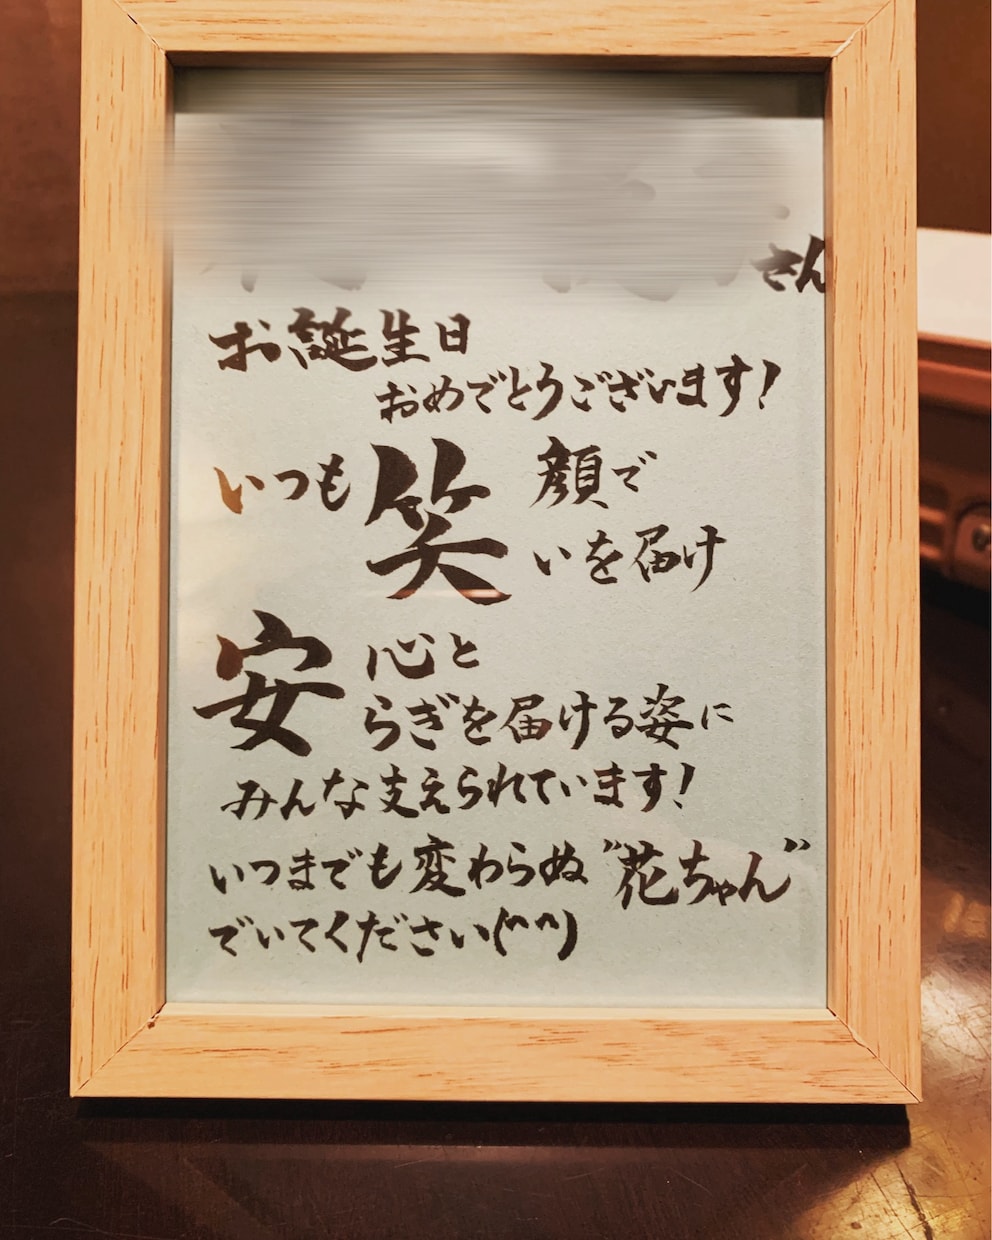 さん
お誕生日
おめでとうございます!
いつも笑顔で
いを届け
安心と
らぎを届ける姿に
みんな支えられています!
いつまでも変わらぬ"花ちゃん"
でいてください(^^)